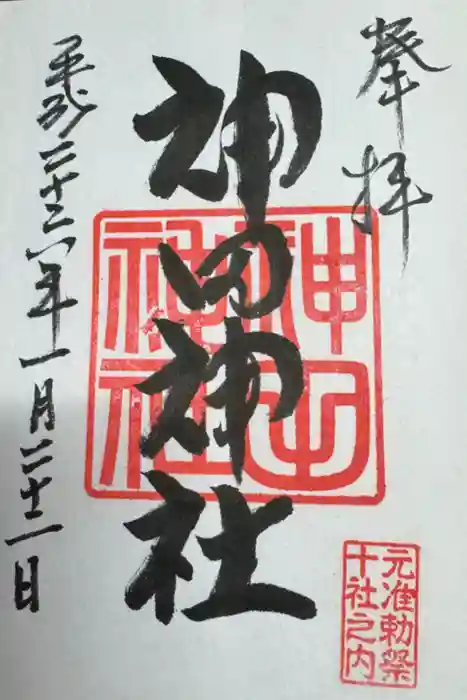 奉拝
神田神社
神田
神社
平成二十六年一月二十二日
元准勅祭
十社之内